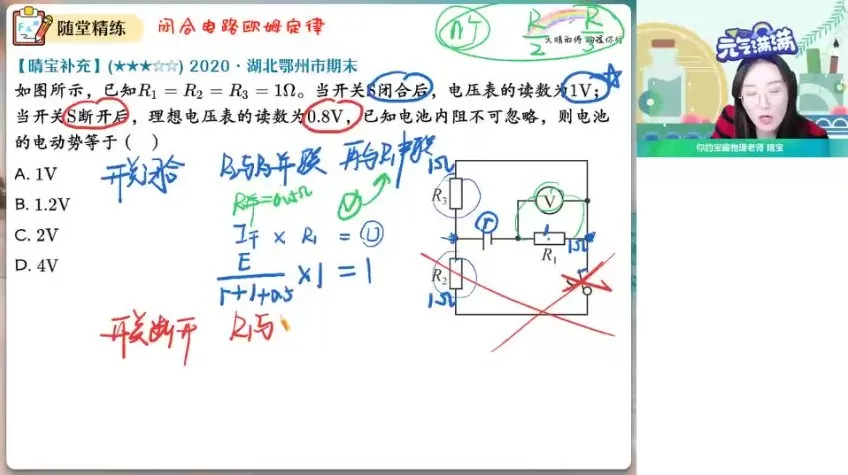 随堂精练 闭合电路欧姆定律
n个 R/2 R/3
天晴雨停
【晴宝补充】(★★★☆☆) 2020·湖北鄂州市期末
如图所示，已知R₁ = R₂ = R₃ = 1Ω。当开关S闭合后，电压表的读数为1V；
当开关S断开后，理想电压表的读数为0.8V，已知电池内阻不可忽略，则电池
的电动势等于（ ）
A. 1V
B. 1.2V
C. 2V
D. 4V
开关闭合 R₂与R₃并联 再与R₁串联
R并=0.5Ω V
I干 × R₁ = U
E/(r+1+0.5) ×1 = 1
开关断开 R₁与
1Ω
R₃
V
r
1
1Ω
R₁
R₂
1Ω
S
元气满满
你的宝藏物理老师 晴宝